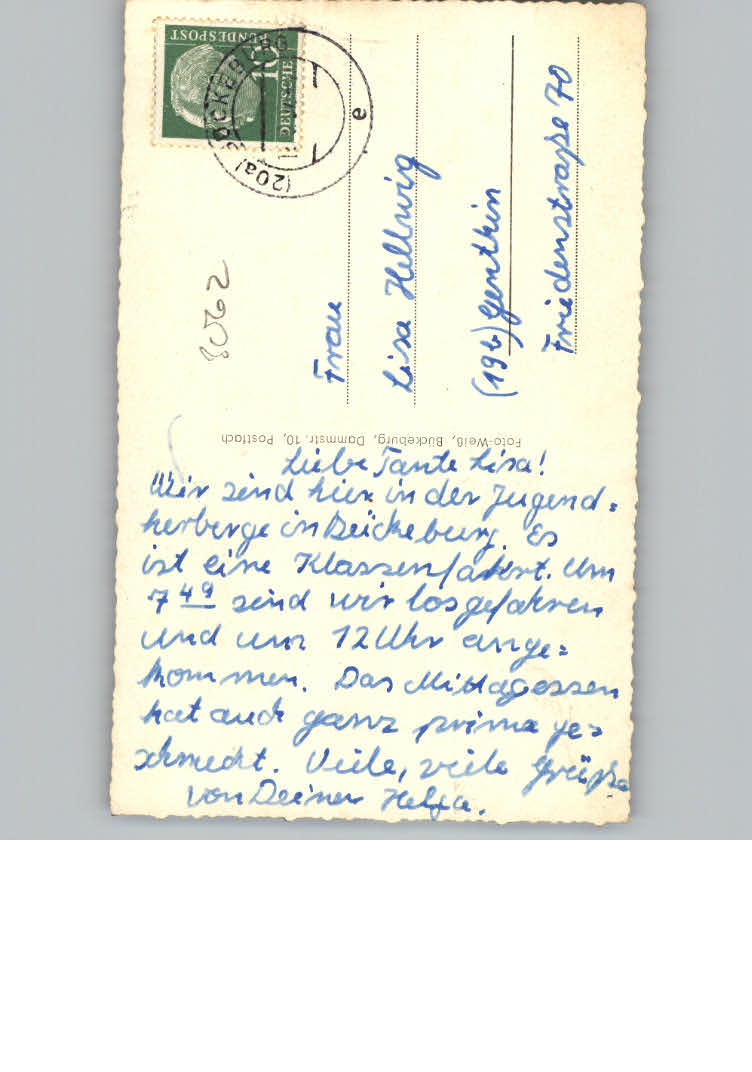 DEUTSCHE
BUNDESPOST
10
(20a) BÜCKEBURG
e
8062
Frau
Lisa Hellwig
(19b) Genthin
Friedenstraße 70
Foto-Weiß, Bückeburg, Dammstr. 10, Postfach
Liebe Tante Lisa!
Wir sind hier in der Jugend=
herberge in Bückeburg. Es
ist eine Klassenfahrt. Um
7 49 sind wir losgefahren
und um 12 Uhr ange=
kommen. Das Mittagessen
hat auch ganz prima ge=
schmeckt. Viele, viele Grüße
von Deiner Helga.